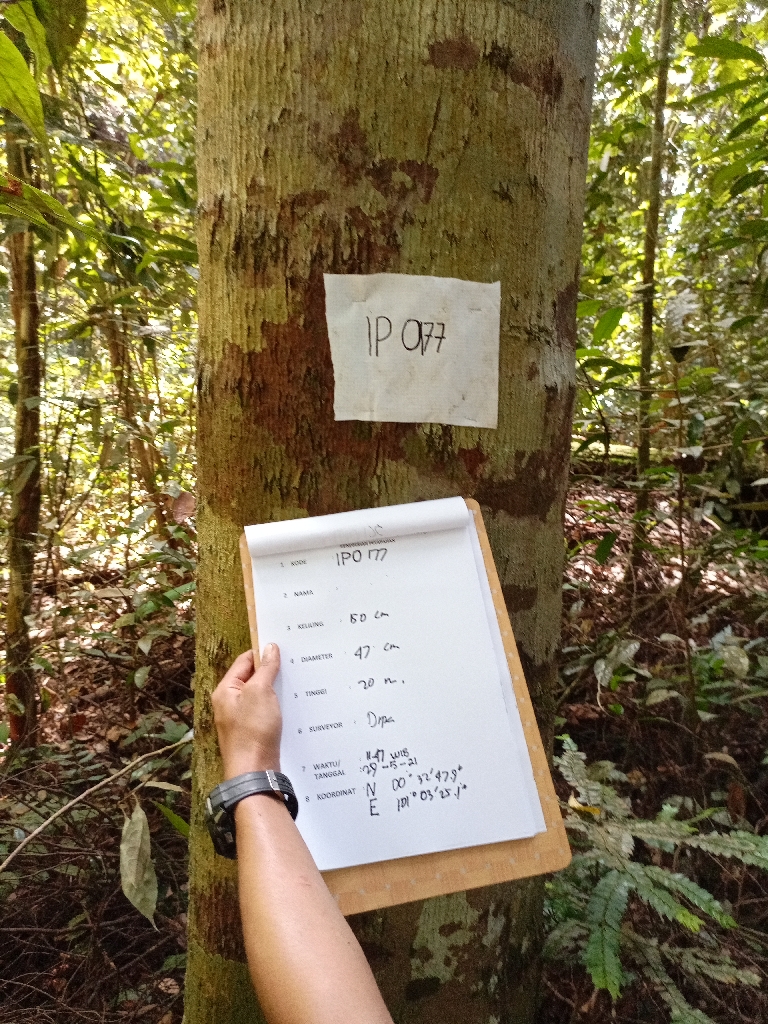 IP 077
1 KODE IPO 77
2 NAMA :
3 KELILING : 150 cm
4 DIAMETER : 47 cm
5 TINGGI : 20 m.
6 SURVEYOR : Dipa
7 WAKTU/ : 11.47 WIB
TANGGAL : 29-5-21
8 KOORDINAT N 00° 32' 47.9"
E 101° 03' 25.1"